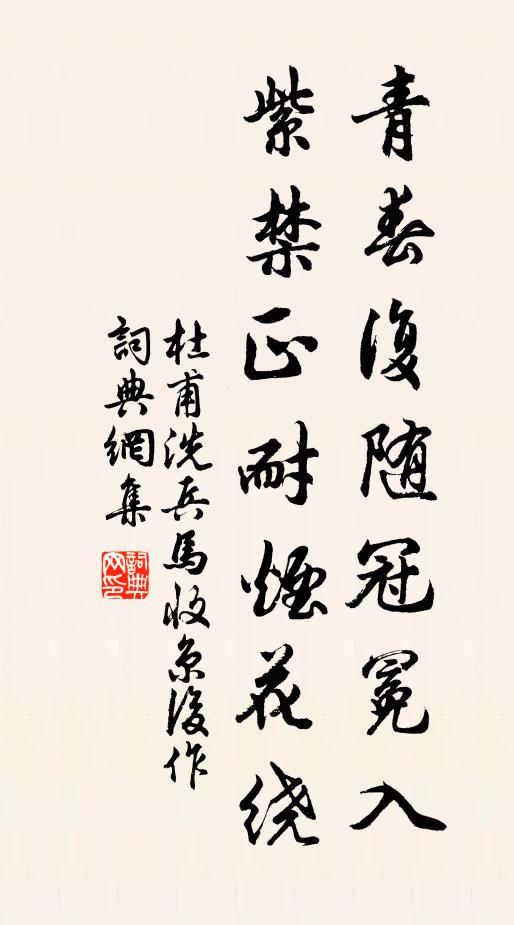 青春復随冠冕入
紫禁正耐煙花绕
杜甫洗兵馬收京後作
詞典網集
詞典網印